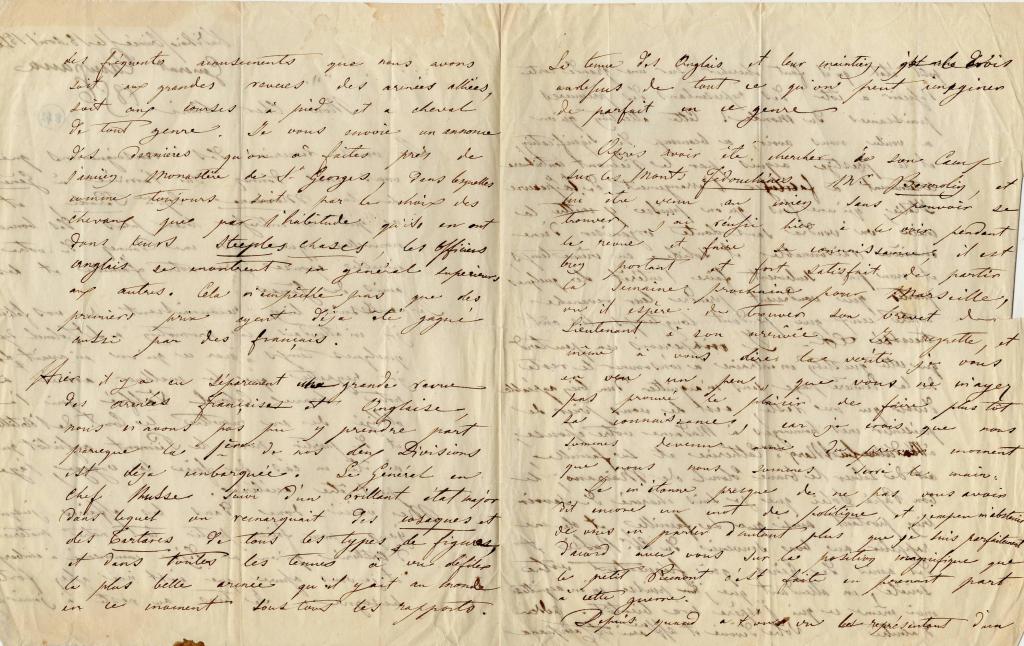 des fréquents amusements que nous avons
soit aux grandes revues des armées alliées,
soit aux courses à pied et a cheval
de tout genre. Je vous envoie un annonce
des dernières qu'on a faites près de
l'ancien Monastère de St Georges. Dans lesquelles
comme toujours soit par le choix des
chevaux que par l'habitude qu'ils en ont
dans leurs steeples chases les officiers
anglais se montrent en général superieurs
aux autres. Cela n'empèche pas que des
premiers prix ayent déja été gagné
aussi par des français.
Hier il y a eu séparement une grande revue
des armées française et Anglaise,
nous n'avons pas pu y prendre part
parceque la 1ère de nos deux Divisions
est déja embarquée. Le Général en
Chef Russe suivi d'un brillant état major
dans lequel on remarquait des cosaques et
des Tartares de tous les types de figures,
et dans toutes les tenues a vu defiler
la plus belle armée qu'il y ait au monde
en ce moment sous tous les rapports.
La tenue des Anglais et leur maintien, est je crois
audessus de tout ce qu'on peut imaginer
de parfait en ce genre
Après avoir été chercher à son Camp
sur les Monts Fedouchines, Mr, et
lui être venu au mien sans pouvoir se
trouver, j'ai réussi hier à le voir pendant
la revue et faire sa connaissance; il est
bien portant et fort satisfait de partir
la semaine prochaine pour Marseille,
ou il espère de trouver son brevet de
Lieutenant à son arrivée. Je regrette, et
même à vous dire la verité je vous
en veu un peu, que vous ne m'ayez
pas procuré le plaisir de faire plus tôt
sa connaissance, car je crois que nous
sommes devenu amis du premier moment
que nous nous sommes serré la main.
Je m'étonne presque de ne pas vous avoir
dit encore un mot de politique et
de vous en parler d'autant plus que je suis parfaitement
d'acord avec vous sur la position magnifique que
le petit Piémont s'est faite en prenant part
à cette guerre.
Depuis quand a-t'on vu les représentans d'un